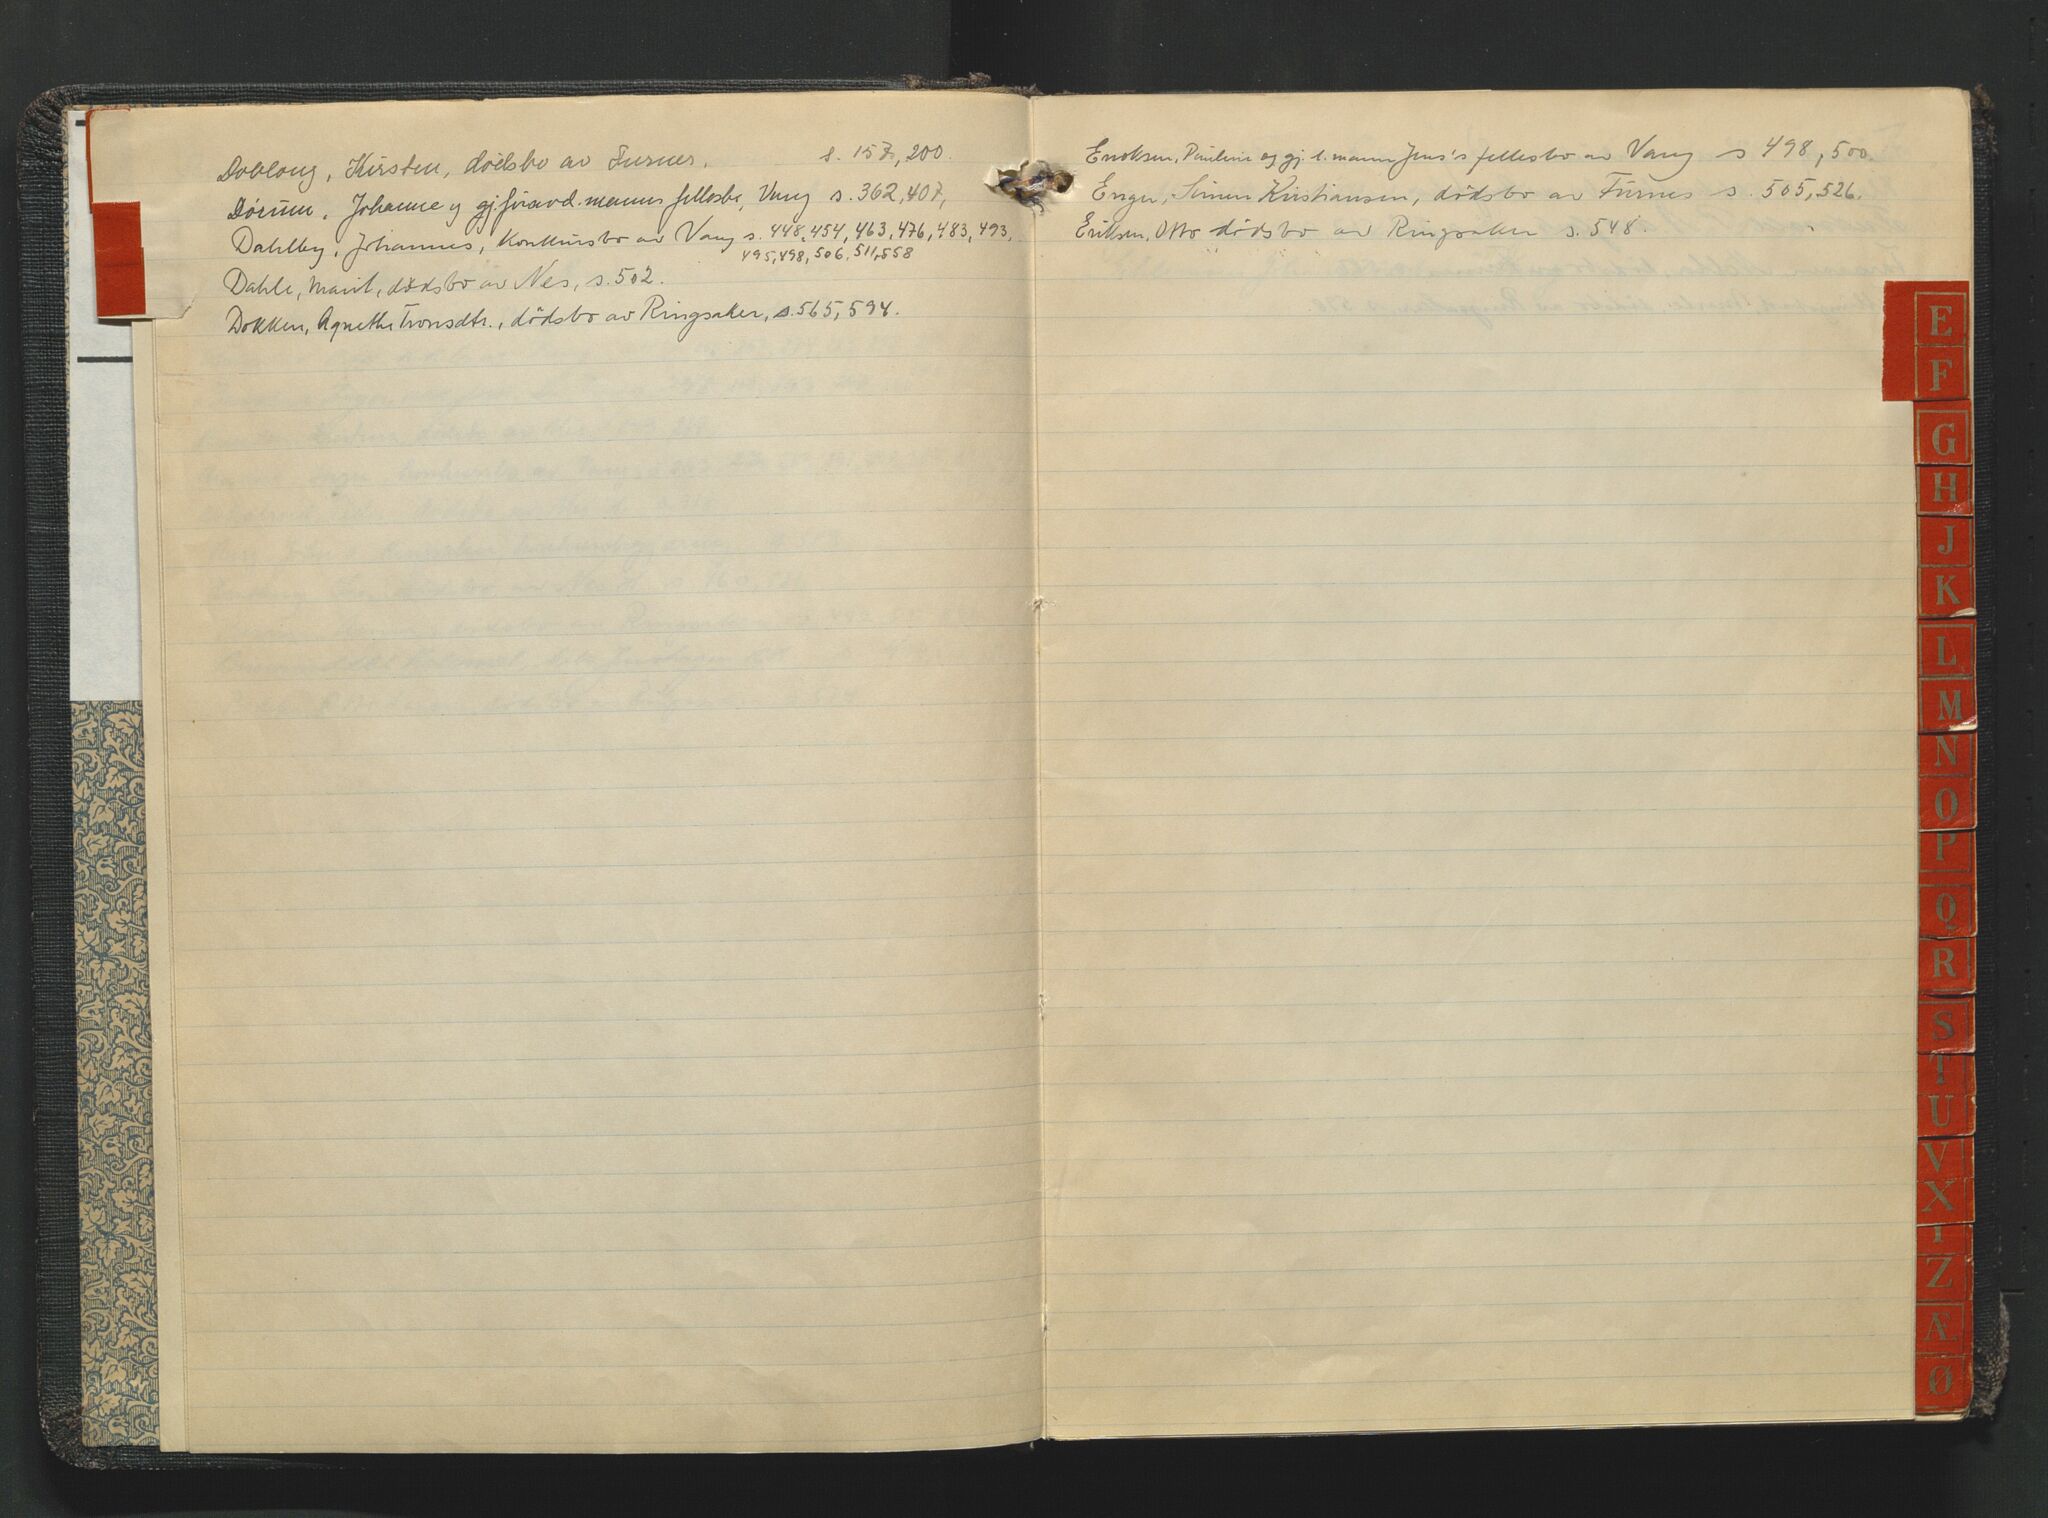 Dobloug, Kirsten, dødsbo av Furnes. s. 157, 200.
Dørum, Johanne og gj. foravd. manns fellesbo, Vang s. 362, 407,
Dahlby, Johannes, Konkursbo av Vang s. 448, 454, 463, 476, 483, 493,
495, 498, 506, 511, 558
Dahle, Marit, dødsbo av Nes, s. 502.
Dokken, Agnethe Tronsdtr., dödsbo av Ringsaker, s. 565, 594.
Eriksen, Pauline og gj. l. mann Jens's fellesbo av Vang s 498, 500.
Enger, Simen Kristiansen, dödsbo av Furnes s. 505, 526.
Eriksen, Otto dödsbo av Ringsaker s. 548.
E
F
G
H
J
K
L
M
N
O
P
Q
R
S
T
U
V
X
Y
Z
Æ
Ø